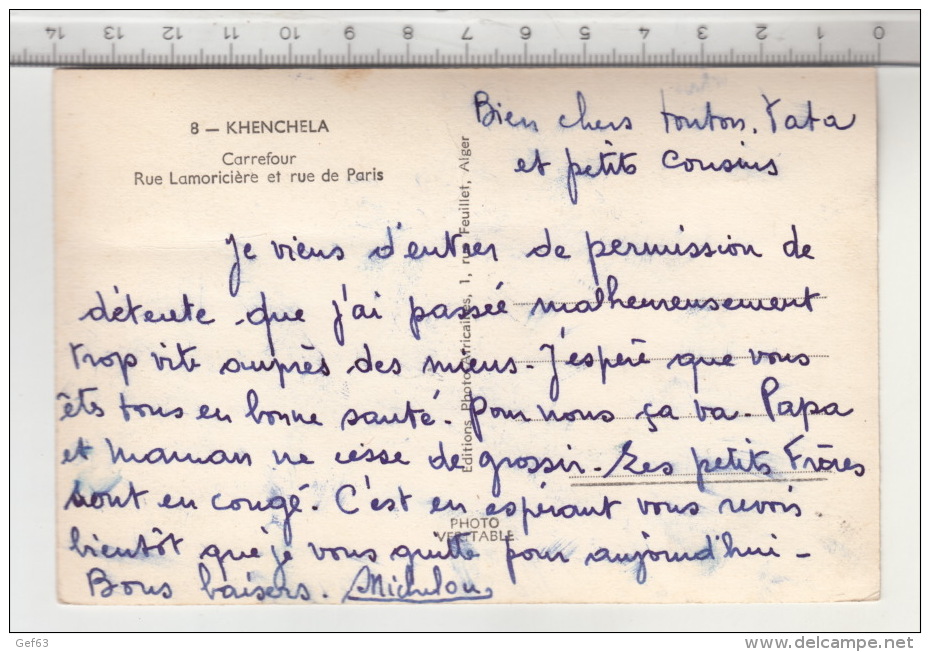 14 13 12 11 10 9 8 7 6 5 4 3 2 1 0
8 — KHENCHELA
Carrefour
Rue Lamoricière et rue de Paris
Editions Photo-Africaines, 1, rue Feuillet, Alger
PHOTO
VERITABLE
Bien chers tonton, Tata
et petits cousins
Je viens d'entrer de permission de
détente que j'ai passée malheureusement
trop vite auprès des miens - J'espère que vous
êtes tous en bonne santé - Pour nous ça va - Papa
et Maman ne cesse de grossir - Les petits Frères
sont en congé. C'est en espérant vous revoir
bientôt que je vous quitte pour aujourd'hui -
Bons baisers. Michelou
Gef63
www.delcampe.net